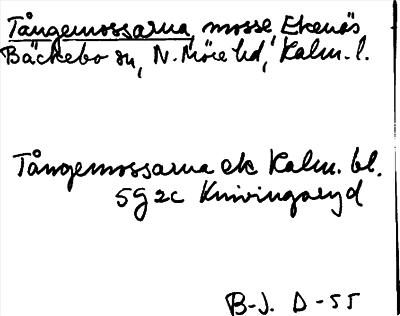 Tångemossarna, mosse, Ekenäs
Bäckebo sn, N. Möre hd, Kalm. l.
Tångemossarna ek Kalm. bl.
5g2c Knivingaryd
B-J. D-55